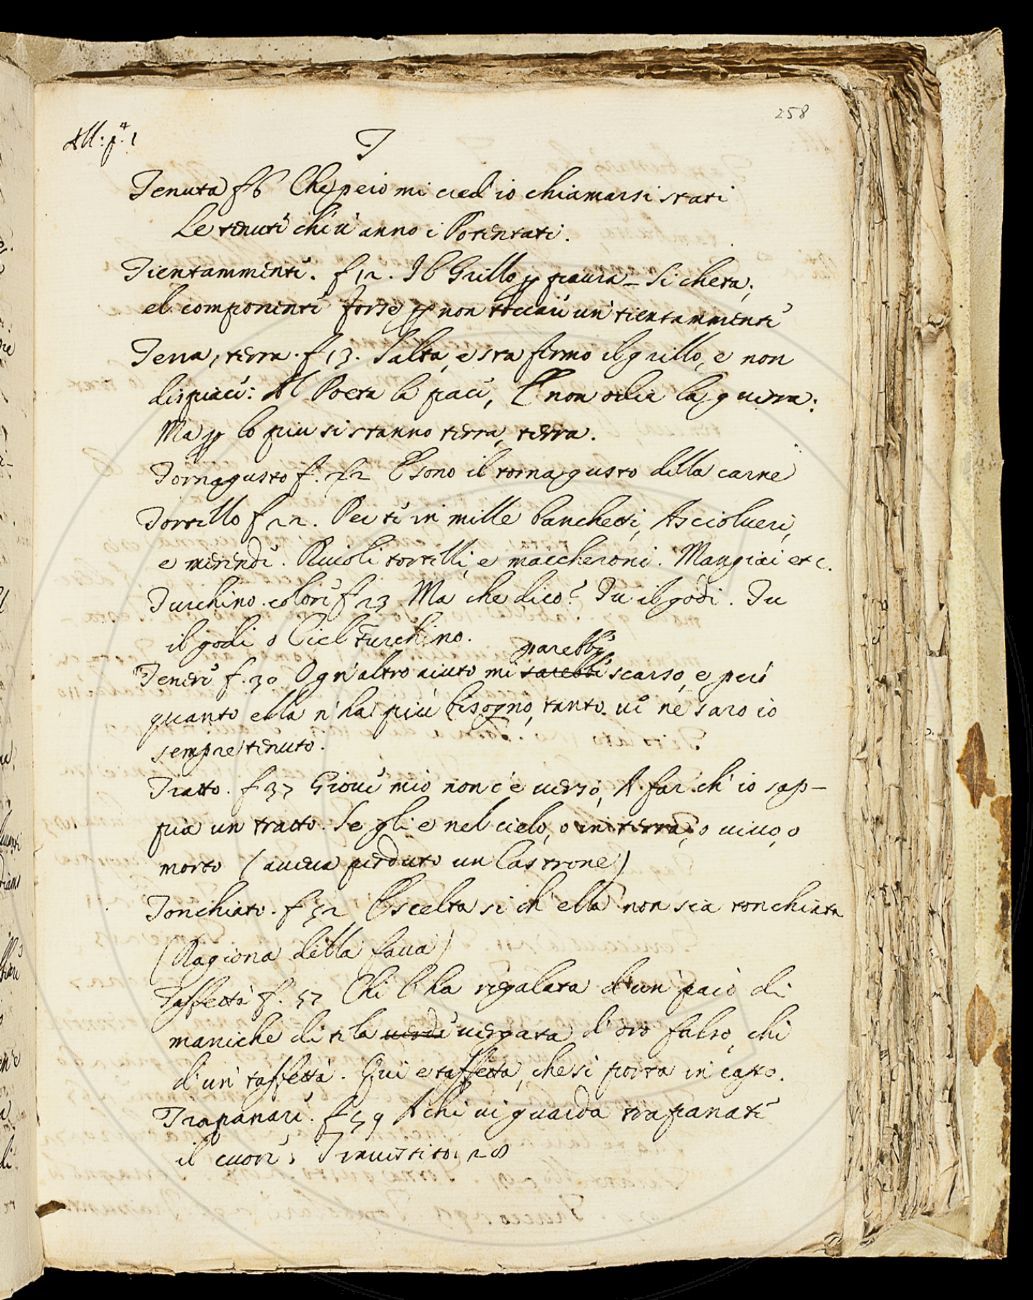 258
All: p.ª 1
T
Tenuta f 6 Che peio mi cred' io chiamarsi stati
Le tenute chi ú anno i Potentati.
Tientammente. f 12. Il Grillo p paura_ si cheta;
el componente forse p non toccar un tientammente
Terra, terra. f 13. Salta, e sta fermo il grillo, e non
dispiace: Al Poeta la pace, E non odia la guerra:
Ma p lo piu si stanno terra, terra.
Tornagusto f. 22 E sono il torna gusto della carne
Tortello f 22. Per te in mille banchetti, Asciolveri,
e merende. Ravioli tortelli, e maccheroni. Mangiai etc.
Turchino colore f 23 Ma che dico? Tu il godi. Tu
il godi o Ciel turchino.
parebbe
Tenere f. 30 Ogn' altro aiuto mi sarebbe scarso, e però
quanto ella n' ha più bisogno, tanto ui ne saro io
sempre tenuto.
Tratto. f 37 Giove mio non c'è verso, A far ch' io sap-
pia un tratto. Se gli e nel cielo, o in terra, o uiuo, o
morto (aueua perduto un Castrone)
Tonchiato. f 52 E scelta si ch' ella non sia tonchiata
(Ragiona della faua)
Taffettà f. 57 Chi l' ha regalata d' un paio di
maniche di tela uerde uergata d' oro falso, chi
d' un taffettà. Qui e taffetta, che si porta in capo.
Trapanare. f 59 A chi ui guarda trapanate
il cuore; Trauestito: 28